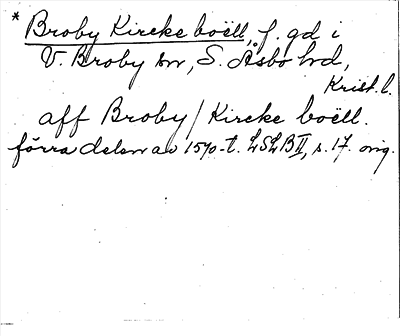 * Broby Kircke boëll, f. gd i
V. Broby sn, S. Åsbo hd,
Krist. l.
aff Broby / Kircke boëll.
förra delen av 1570-t. LSLB II, s. 17. orig.